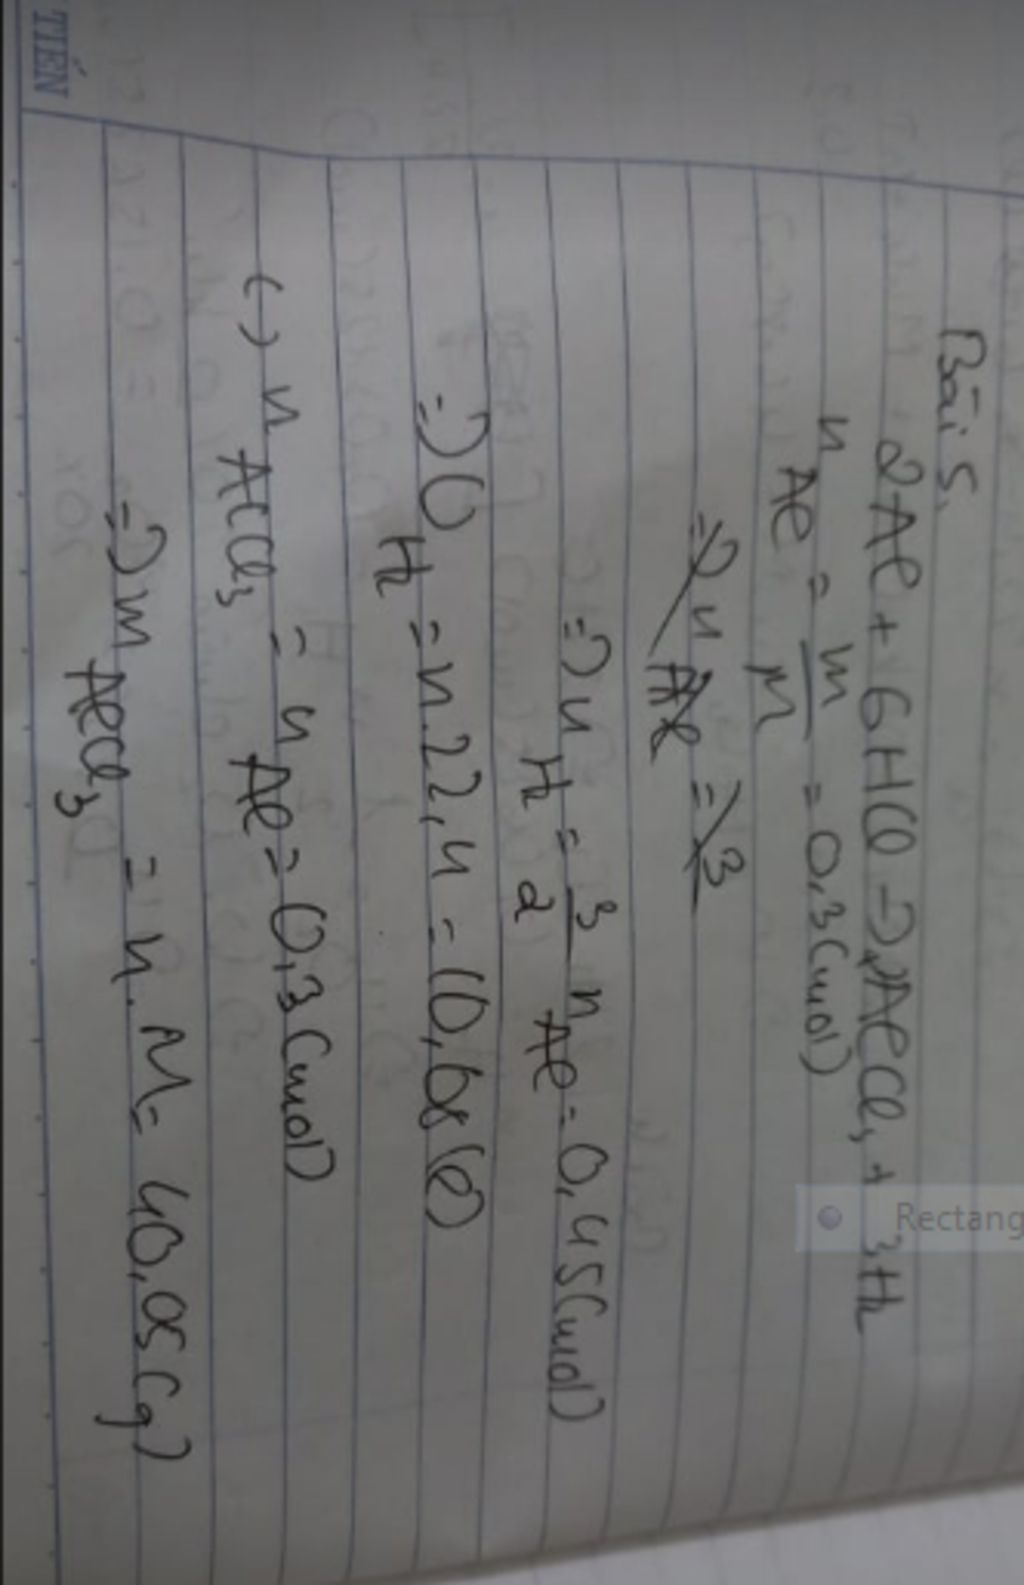 Bài 5.
2Al + 6HCl → 2AlCl3 + 3H2
nAl = m/M = 0,3 (mol)
=> nAl = 3
=> nH2 = 3/2 nAl = 0,45 (mol)
=> VH2 = n.22,4 = 10,08 (l)
(-) nAlCl3 = nAl = 0,3 (mol)
=> mAlCl3 = n.M = 40,05 (g)
TIẾN
Rectang